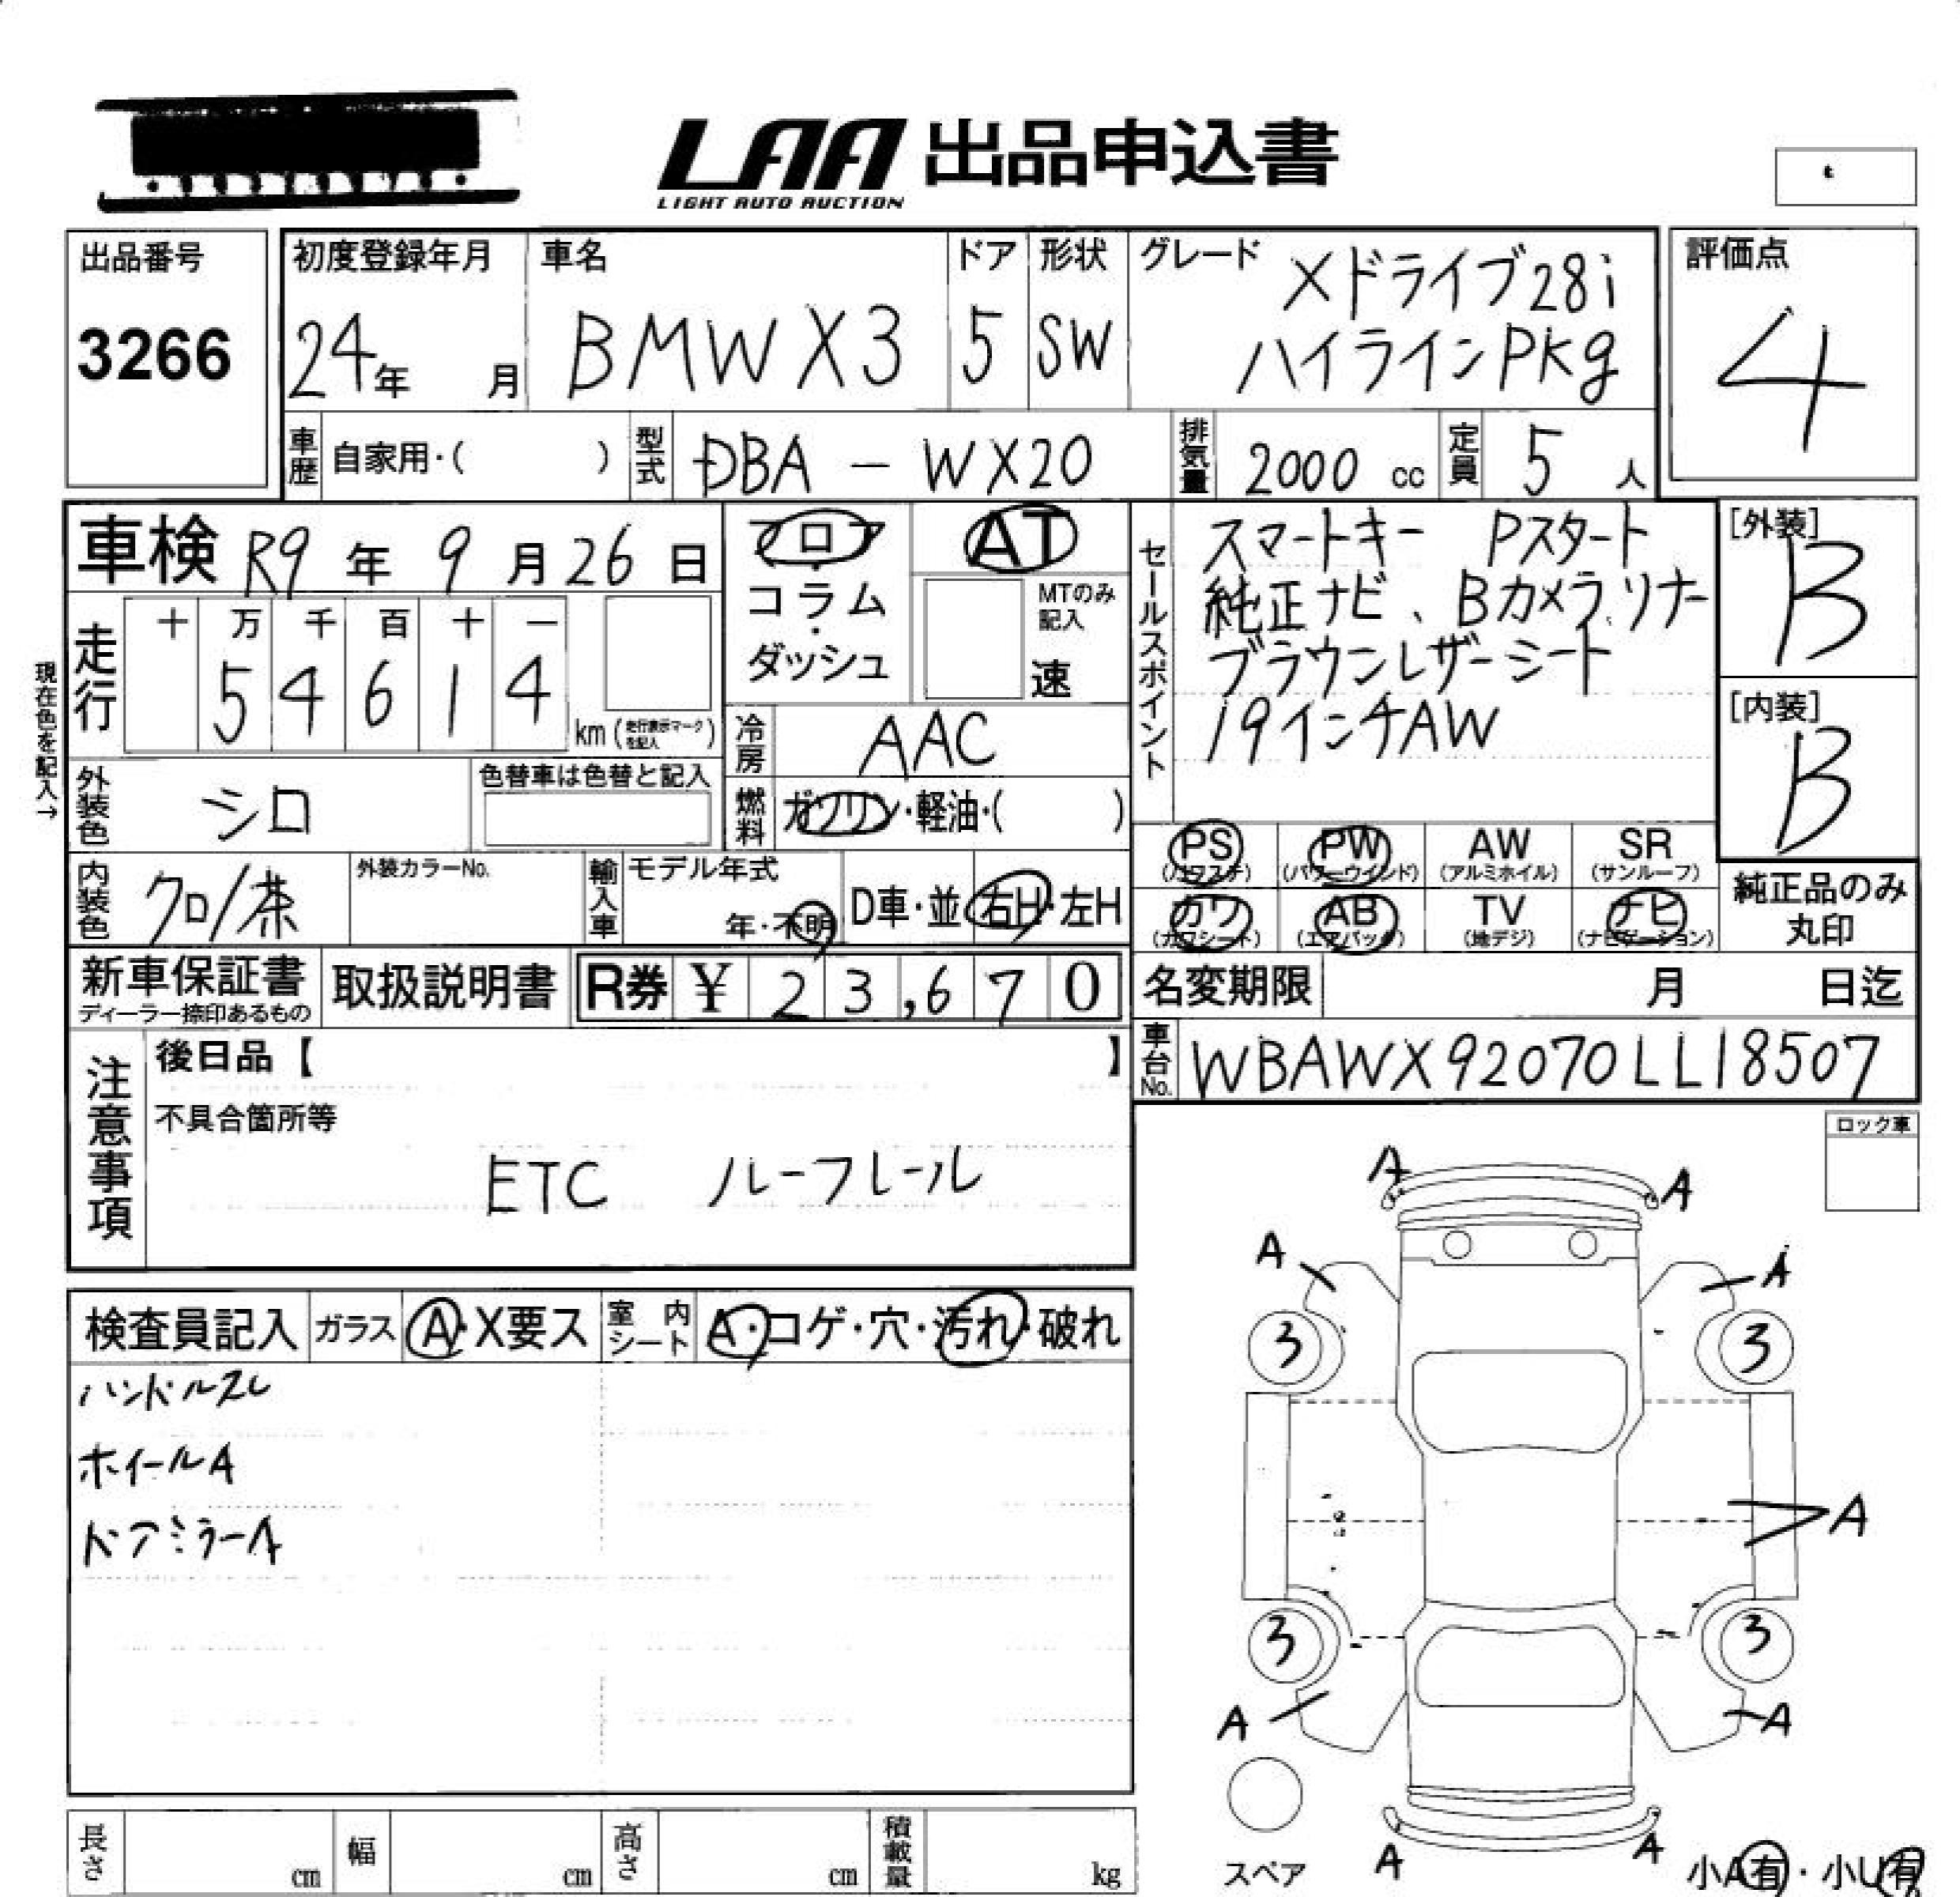 LAA 出品申込書
LIGHT AUTO AUCTION
出品番号 初度登録年月 車名 ドア 形状 グレード 評価点
3266 24年 月 BMW X3 5 SW Xドライブ28i
ハイラインPKg 4
車歴 自家用・( ) 型式 DBA － WX20 排気量 2000 cc 定員 5 人
車検 R9 年 9 月 26 日 フロア AT
コラム
・
ダッシュ
MTのみ
記入
速
セールスポイント
スマートキー Pスタート
純正ナビ、Bカメラ、リナー
ブラウンレザーシート
19インチAW
[外装]
B
[内装]
B
現在色を記入→
走行 十 万 千 百 十 一
5 4 6 1 4 km (走行表示マークを記入)
冷房 AAC
外装色 シロ 色替車は色替と記入
燃料 ガソリン・軽油・( )
PS PW AW SR
(パワステ) (パワーウインド) (アルミホイル) (サンルーフ)
カワ AB TV ナビ
(カワシート) (エアバック) (地デジ) (ナビゲーション)
純正品のみ
丸印
内装色 クロ/茶 外装カラーNo. 輸入車 モデル年式
年・不明 D車・並 右H・左H
新車保証書
ディーラー捺印あるもの
取扱説明書 R券 ¥ 23,670
名変期限 月 日迄
車台No. WBAWX92070LL18507
注意事項
後日品【 】
不具合箇所等
ETC ルーフレール
ロック車
検査員記入 ガラス A・X要ス 室内シート A・コゲ・穴・汚れ・破れ
ハンドルスレ
ホイールA
ドアミラーA
A A
A A
3 3
A
3 3
A A
A A
スペア
小A有・小U有
長さ cm 幅 cm 高さ cm 積載量 kg